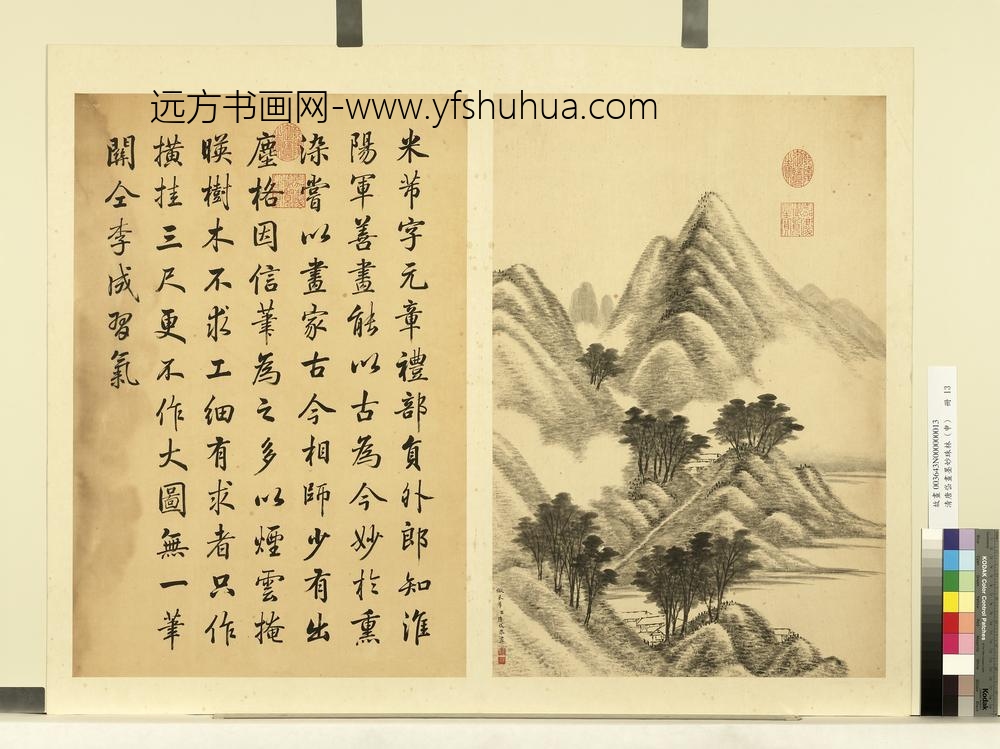 远方书画网-www.yfshuhua.com
米芾字元章禮部負外郎知淮
陽軍善畫能以古為今妙於熏
染嘗以畫家古今相師少有出
塵格因信筆為之多以煙雲掩
暎樹木不求工細有求者只作
橫挂三尺更不作大圖無一筆
關仝李成習氣
故畫003643N000000013
清唐岱畫墨妙珠林(申) 冊 13
KODAK Color Control Patches
Kodak